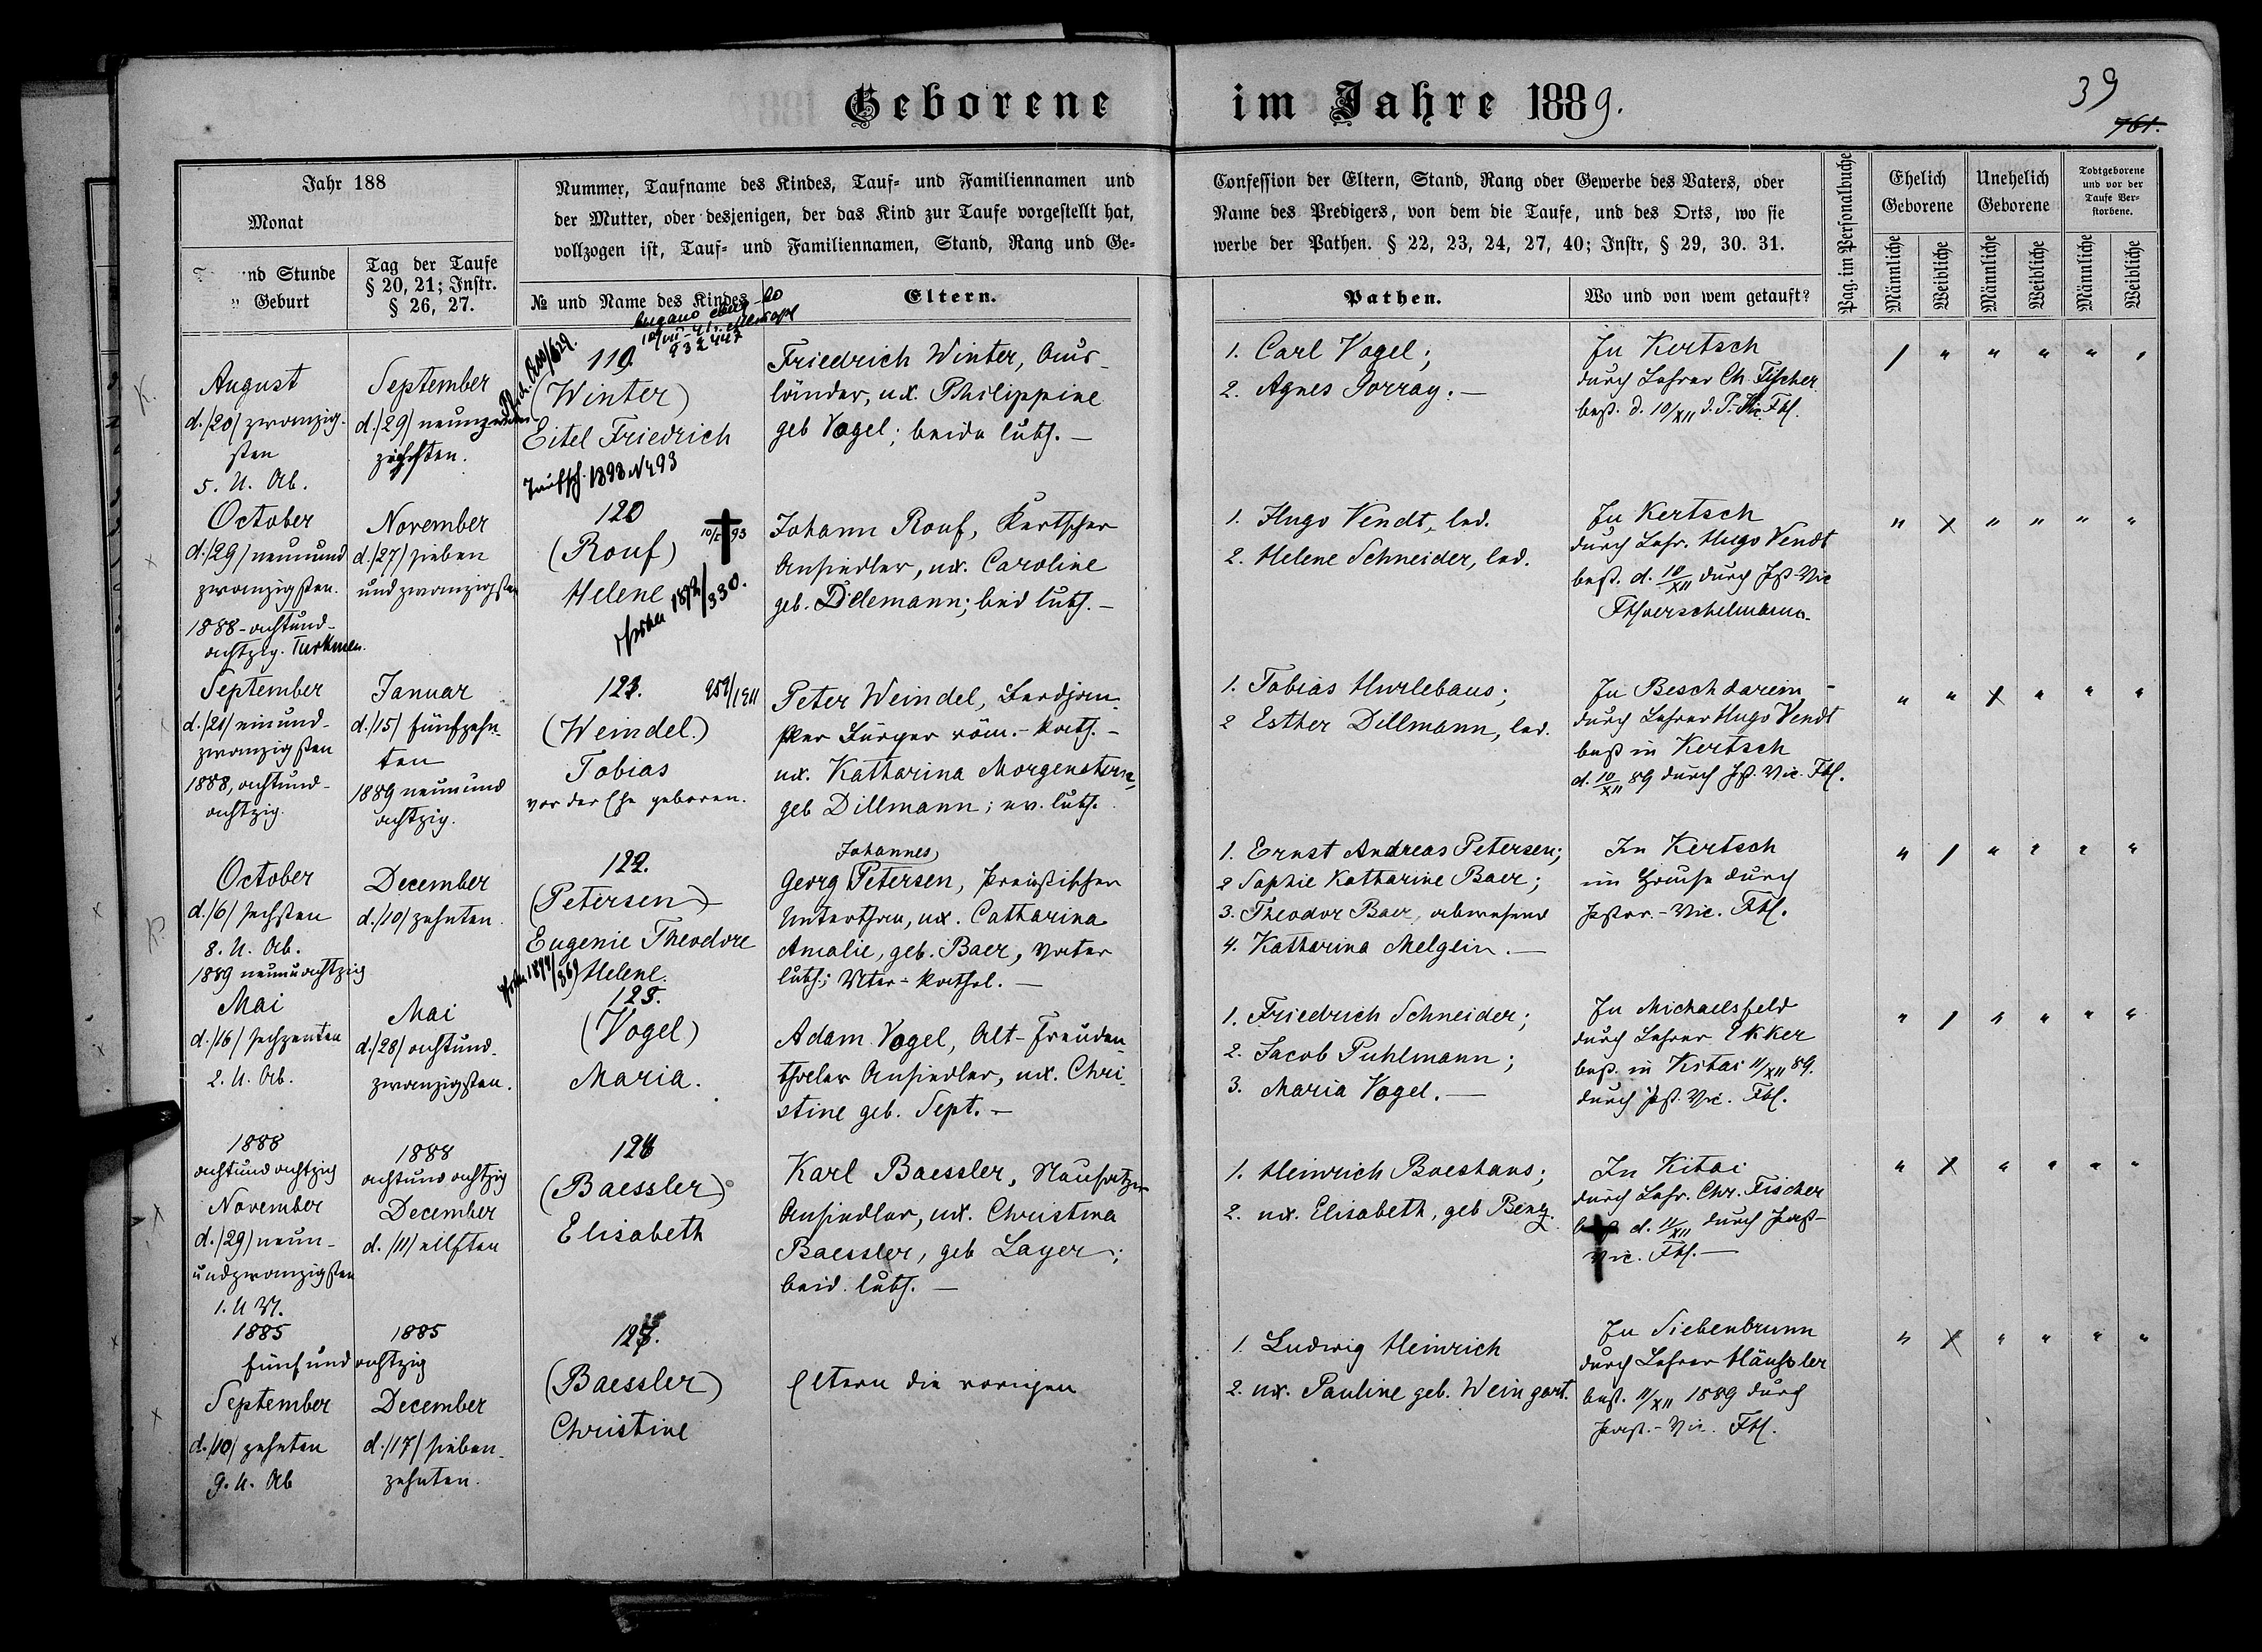 Geborene im Jahre 1889.
39
761.
Jahr 188
Monat
nd Stunde
Geburt
Tag der Taufe
§ 20, 21; Instr.
§ 26, 27.
Nummer, Taufname des Kindes, Tauf= und Familiennamen und
der Mutter, oder desjenigen, der das Kind zur Taufe vorgestellt hat,
vollzogen ist, Tauf= und Familiennamen, Stand, Rang und Ge=
№ und Name des Kindes
Eltern.
Confession der Eltern, Stand, Rang oder Gewerbe des Vaters, oder
Name des Predigers, von dem die Taufe, und des Orts, wo sie
werbe der Pathen. § 22, 23, 24, 27, 40; Instr, § 29, 30. 31.
Pathen.
Wo und von wem getauft?
Pag. im Personalbuche
Ehelich
Geborene
Unehelich
Geborene
Todtgeborene
und vor der
Taufe Ver=
storbene.
Männliche
Weibliche
Männliche
Weibliche
Männliche
Weibliche
August
d. /20/ zwanzig-
sten
5. U. Ab.
September
d. /29/
119.
(Winter)
Eitel Friedrich
1898 N 493
Friedrich Winter, Aus-
länder, ux. Philippine
geb Vogel; beide luth. –
1. Carl Vogel;
2. Agnes Gorray. –
In Kertsch
durch Lehrer Ch. Fischer
best. d. 10/XII d. P.-Vic. Fth.
October
d. /29/ neunund
zwanzigsten.
1888 - achtund-
achtzig. Turkmen.
November
d. /27/ sieben
undzwanzigsten
120
(Rouf)
Helene
1892/330.
Johann Rouf, Kertscher
Ansiedler, ux. Caroline
geb. Dillemann; beid luth. –
1. Hugo Vendt, led.
2. Helene Schneider, led.
In Kertsch
durch Lehr. Hugo Vendt
best. d. 10/XII durch Pst-Vic
September
d. /21/ einund-
zwanzigsten
1888, achtund-
achtzig.
Januar
d. /15/ fünfzehn-
ten
1889 neunund
achtzig.
121.
959/1911
(Weindel.)
Tobias
vor der Ehe geboren.
Peter Weindel, Berdjan-
sker Bürger röm.- kath. –
ux. Katharina Morgenstern,
geb Dillmann; ev. luth.
1. Tobias Hurlebaus;
2 Esther Dillmann, led.
In Beschdarein –
durch Lehrer Hugo Vendt
best in Kertsch
d. 10/XII 89 durch Pst. Vic. Fth.
October
d. /6/ sechsten
8. U. Ab.
1889 neunuachtzig
December
d. /10/ zehnten.
122.
(Petersen)
Eugenie Theodore
Helene.
Johannes,
Georg Petersen, Preußischer
Unterthan, ux. Catharina
Amalie, geb. Baer, Vater
luth.; Mter- kathol. –
1. Ernst Andreas Petersen;
2 Sophie Katharine Baer;
3. Theodor Baer, abwesend
4. Katharina Melgein. –
In Kertsch
im Hause durch
Pastor.-Vic. Fth.
Mai
d. /16/ sechzenten
2. U. Ab.
Mai
d. /28/ achtund-
zwanzigsten.
123.
(Vogel)
Maria.
Adam Vogel, Alt-Freuden-
thaler Ansiedler, ux. Chri-
stine geb. Sept. –
1. Friedrich Schneider;
2. Jacob Puhlmann;
3. Maria Vogel. –
In Michaelsfeld
durch Lehrer Ekker
best. in Kitai 11/XII 89.
durch Pst. Vic. Fth.
1888
achtundachtzig
November
d. /29/ neun-
undzwanzigsten
1. U M.
1888
achtundachtzig
December
d. /11/ eilften
124
(Baessler)
Elisabeth
Karl Baessler, Neusatzer
Ansiedler, ux. Christina
Baessler, geb Layer;
beid. luth. –
1. Heinrich Boeshans;
2. ux. Elisabeth, geb Benz.
In Kitai
durch Lehr. Chr. Fischer
d. 11/XII durch Past-
Vic. Fth. –
1885
fünfundachtzig
September
d. /10/ zehnten
9. U. Ab
1885
December
d. /17/ sieben-
zehnten.
(Baessler)
Christine
Eltern die vorigen
1. Ludwig Heinrich
2. ux. Pauline geb. Weingart.
In Siebenbrunn
durch Lehrer Häussler
best. 11/XII 1889 durch
Past.-Vic. Fth.